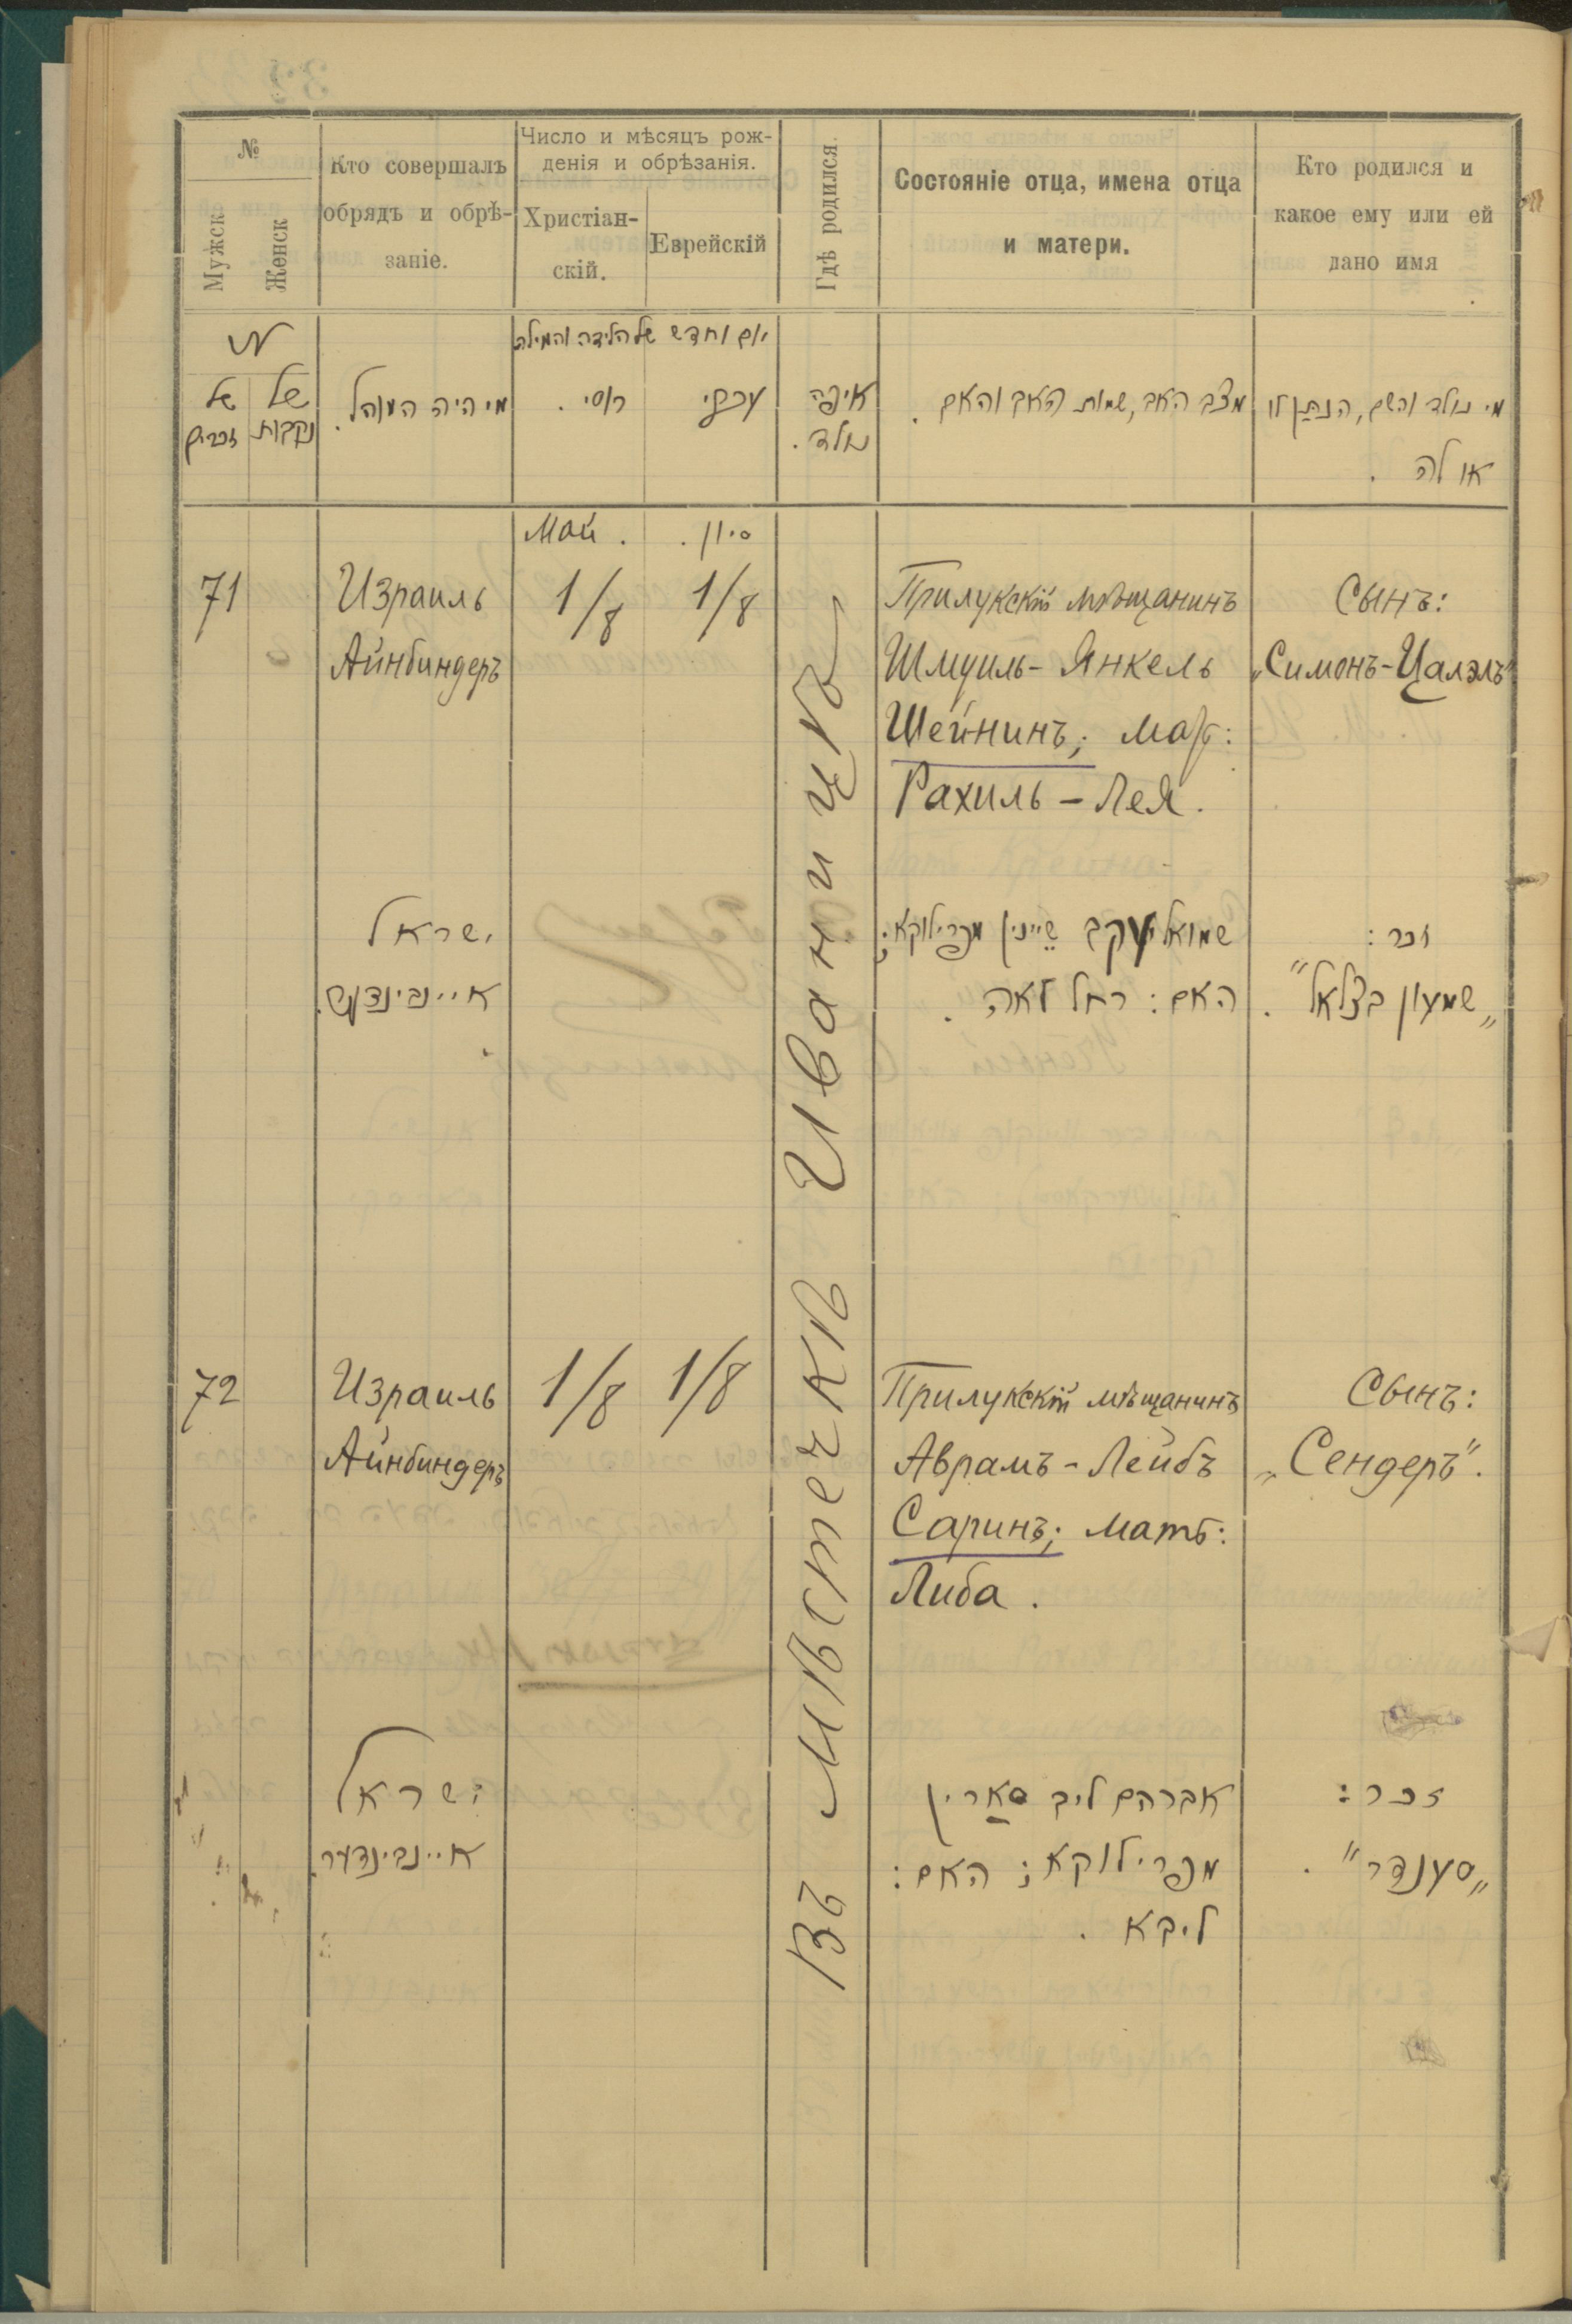 №
Мужск
Женск
Кто совершалъ
обрядъ и обрѣ-
заніе.
Число и мѣсяцъ рож-
денія и обрѣзанія.
Христіан-
скій.
Еврейскій
Гдѣ родился.
Состояніе отца, имена отца
и матери.
Кто родился и
какое ему или ей
дано имя
№
של
זכרים
של
נקבות
מי היה המוהל.
יום וחדש של הלידה והמילה
רוסי.
עברי
איפה
נולד.
מצב האב, שמות האב והאם.
מי נולד והשם, הנתן לו
או לה.
Май.
סיון.
71
Израиль
Айнбиндеръ
1/8
1/8
Прилукскій мѣщанинъ
Шмуиль-Янкель
Шейнинъ; мать:
Рахиль-Лея.
Сынъ:
„Симонъ-Цалэлъ"
ישראל
איינבינדער.
שמואל יעקב שיינין מפרילוקא;
האם: רחל לאה.
זכר:
„שמעון בצלאל".
Въ мѣстечкѣ Иваницѣ
72
Израиль
Айнбиндеръ
1/8
1/8
Прилукскій мѣщанинъ
Аврамъ-Лейбъ
Саринъ; мать:
Либа.
Сынъ:
„Сендеръ".
ישראל
איינבינדער.
אברהם ליב סארין
מפרילוקא; האם:
ליבא.
זכר:
„סענדר".